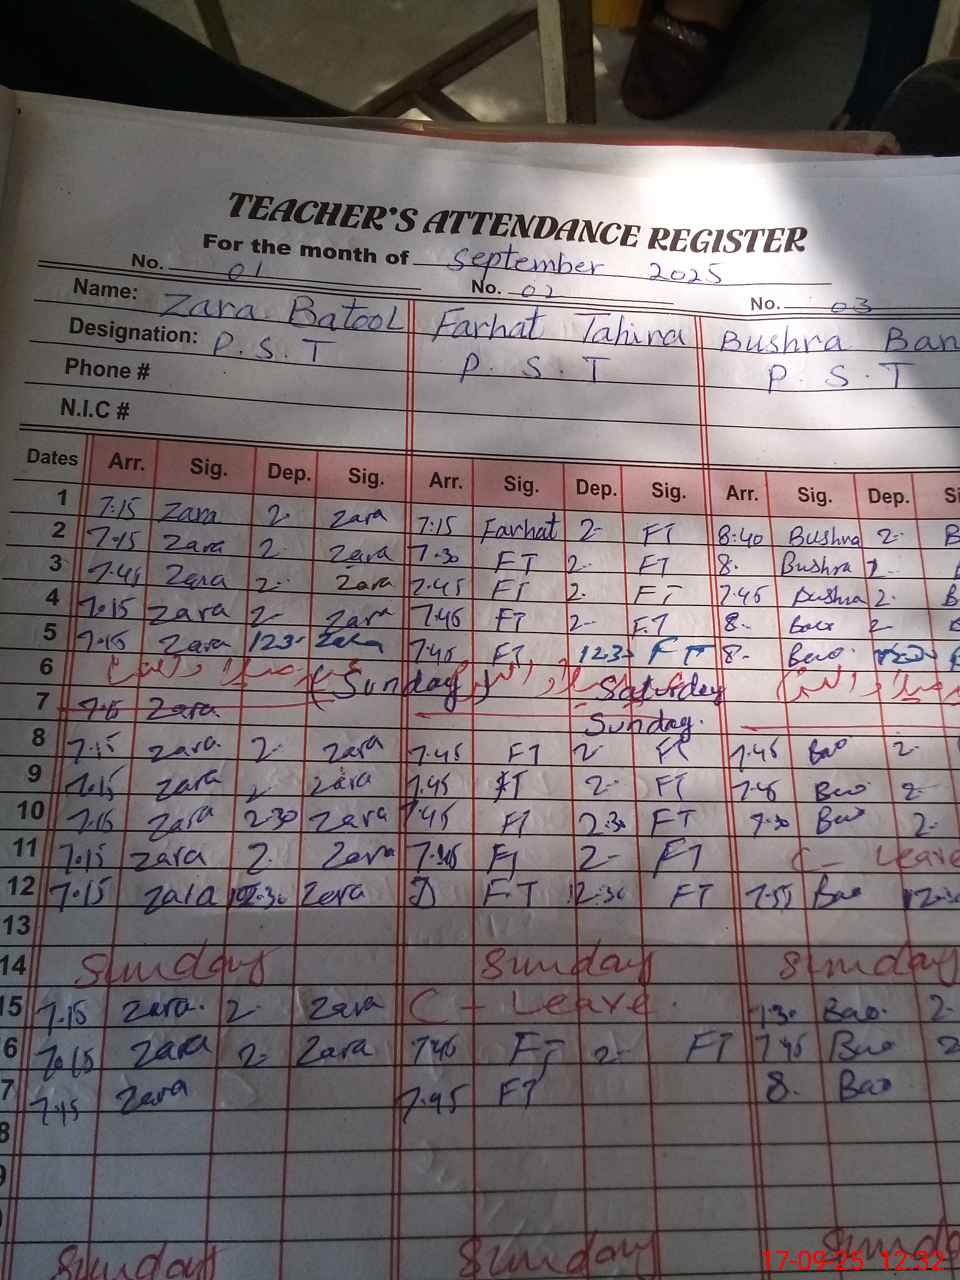 TEACHER'S ATTENDANCE REGISTER
For the month of September 2025
No. 01 No. 02 No. 03
Name: Zara Batool Farhat Tahira Bushra Ban
Designation: P.S.T P.S.T P.S.T
Phone #
N.I.C #
Dates Arr. Sig. Dep. Sig. Arr. Sig. Dep. Sig. Arr. Sig. Dep. Si
1 7:15 Zara 2- Zara 7:15 Farhat 2- FT 8:40 Bushra 2- B
2 7:15 Zara 2- Zara 7:30 FT 2- FT 8. Bushra 2-
3 7:45 Zara 2- Zara 7:45 FT 2. FT 7:45 Bushra 2- B
4 7:15 Zara 2- Zara 7:45 FT 2- F.T 8- 2
5 7:15 Zara 12:30 Zara 7:45 FT 12:30 FT 8- Bano
6 (Sunday) Saturday
7 7:15 Zara Sunday.
8 7:15 Zara. 2- Zara 7:45 FT 2- FT 7:45 Bano 2-
9 7:15 Zara 2- Zara 7:45 FT 2- FT 7:45 Bano 2-
10 7:15 Zara 2:30 Zara 7:45 FT 2:30 FT 7:30 Bano 2-
11 7:15 Zara 2. Zara FT 2- FT C - Leave
12 7:15 Zara 12:30 Zara FT 12:30 FT 7:55 Bano 12:3
13
14 Sunday Sunday Sunday
15 7:15 Zara. 2- Zara C - Leave. 7:30 Bano. 2-
6 7:15 Zara 2- Zara 7:45 FT 2- FT 7:45 Bano 2
7 7:15 Zara 7:45 FT 8. Bano
8
9
Sunday Sunday Sunda
17-09-25 12:32